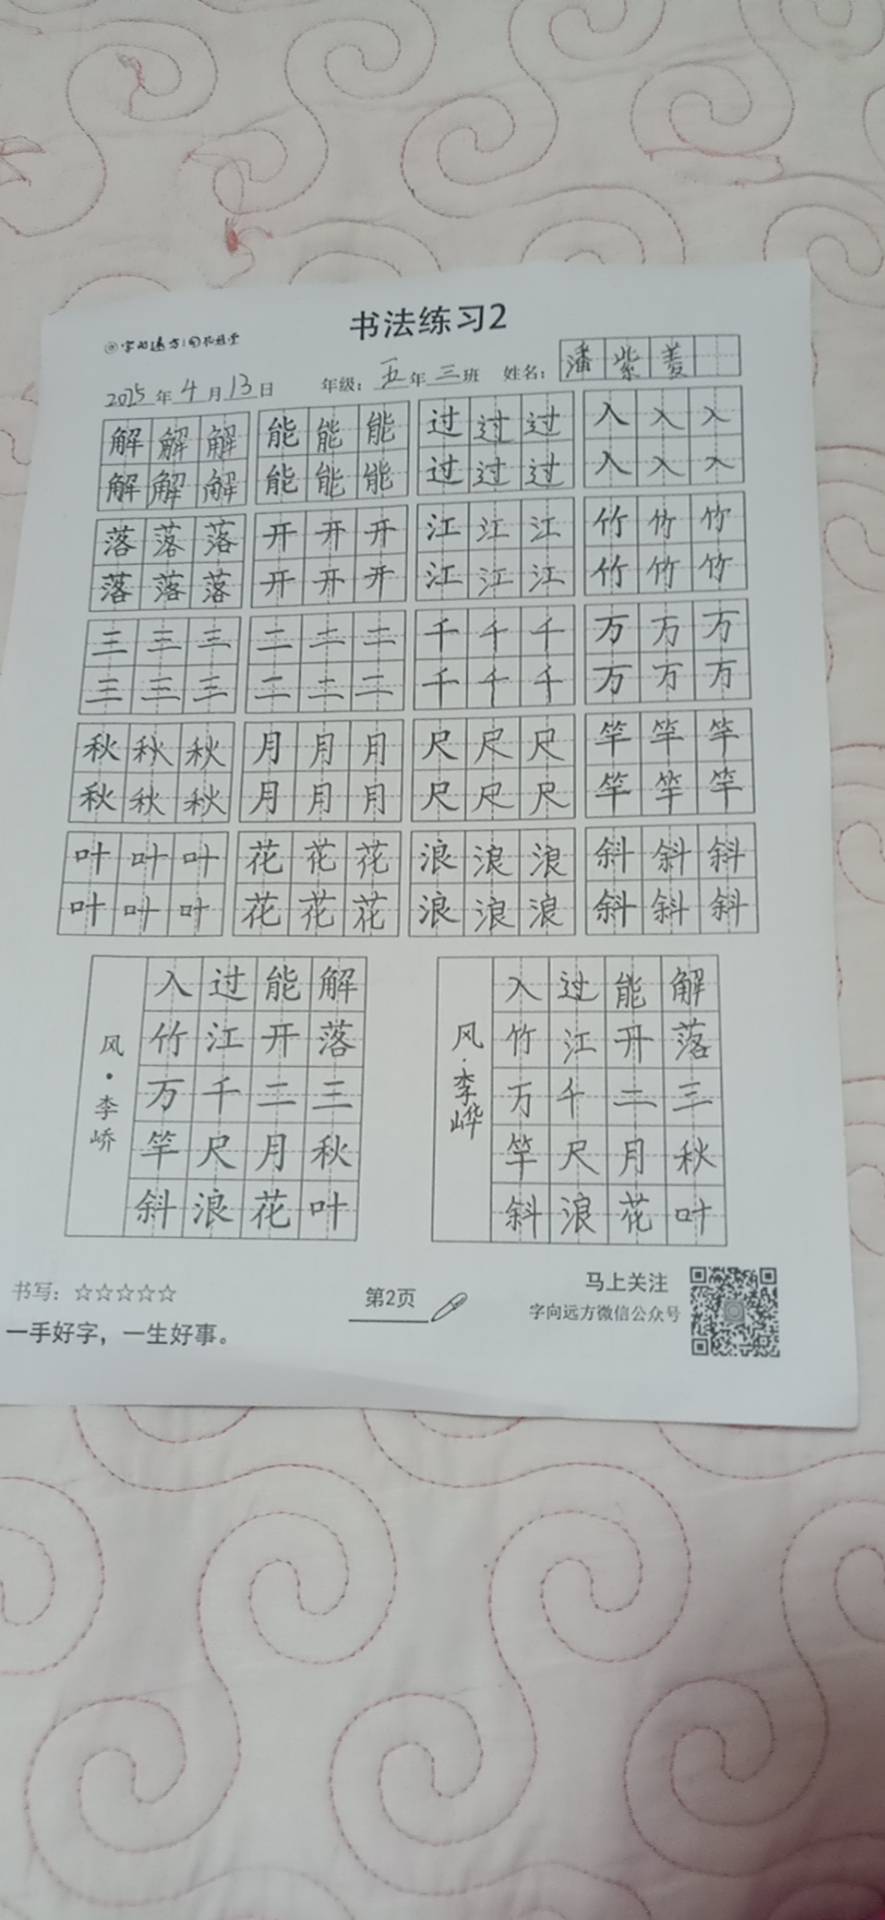 书法练习2
2025年4月13日 年级：五年三班 姓名：潘紫菱
解解解 能能能 过过过 入入入
解解解 能能能 过过过 入入入
落落落 开开开 江江江 竹竹竹
落落落 开开开 江江江 竹竹竹
三三三 二二二 千千千 万万万
三三三 二二二 千千千 万万万
秋秋秋 月月月 尺尺尺 竿竿竿
秋秋秋 月月月 尺尺尺 竿竿竿
叶叶叶 花花花 浪浪浪 斜斜斜
叶叶叶 花花花 浪浪浪 斜斜斜
风·李峤
解落三秋叶
能开二月花
过江千尺浪
入竹万竿斜
风·李晔
解落三秋叶
能开二月花
过江千尺浪
入竹万竿斜
书写：☆☆☆☆☆
一手好字，一生好事。
第2页
马上关注
字向远方微信公众号